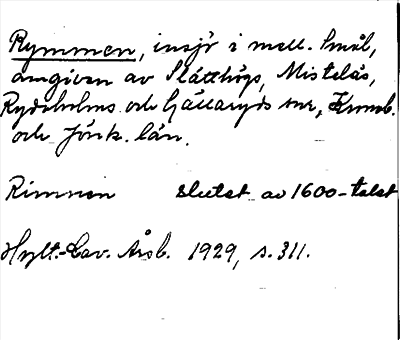 Rymmen, insjö i mell. Smål,
omgiven av Slätthögs, Mistelås,
Rydaholms och Gällaryds snr, Kronob.
och Jönk. län.
Rimnen slutet av 1600-talet
Hylt.-Cav. Årsb. 1929, s. 311.